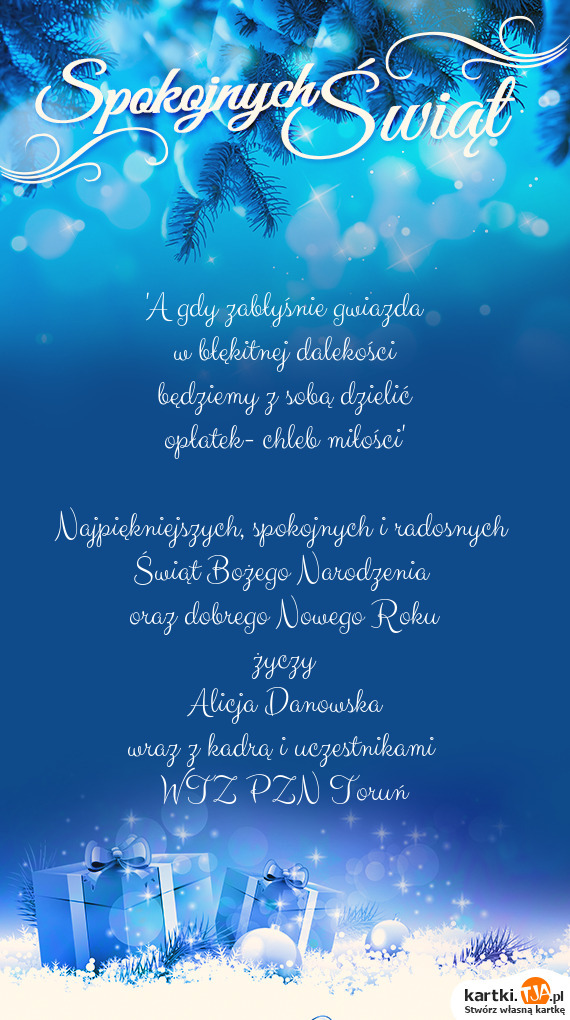 Spokojnych Świąt
'A gdy zabłyśnie gwiazda
w błękitnej dalekości
będziemy z sobą dzielić
opłatek- chleb miłości'
Najpiękniejszych, spokojnych i radosnych
Świąt Bożego Narodzenia
oraz dobrego Nowego Roku
życzy
Alicja Danowska
wraz z kadrą i uczestnikami
WTZ PZN Toruń
kartki.TJA.pl
Stwórz własną kartkę